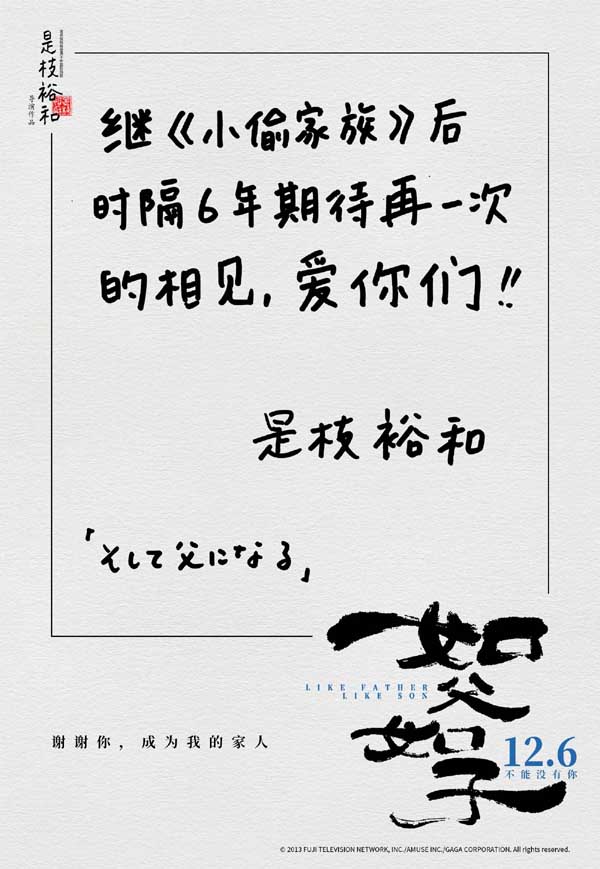 是枝裕和
导演作品
继《小偷家族》后
时隔6年期待再一次
的相见,爱你们!!
是枝裕和
「そして父になる」
如父如子
LIKE FATHER
LIKE SON
12.6
不能没有你
谢谢你，成为我的家人
© 2013 FUJI TELEVISION NETWORK, INC./AMUSE INC./GAGA CORPORATION. All rights reserved.